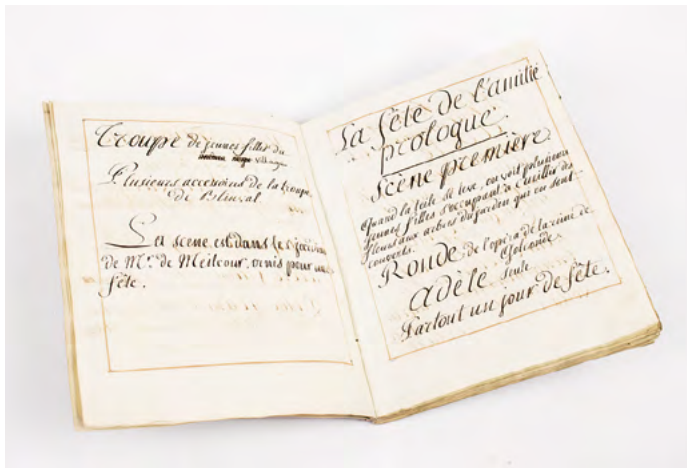 Troupe de jeunes filles du
village
Plusieurs accessoires de la troupe
de Blinval
La scene est dans le
de Mr. de Meilcour, ornis pour une
fête.
La fête de l'amitié
prologue.
Scène première
Quand la toile se leve, on voit plusieurs
jeunes filles s'occupant à cueillir des
fleurs aux arbres du jardin qui en sont
couverts.
Ronde de l'opéra de la reine de
Golconde.
Adèle seule
Partout un jour de fête.